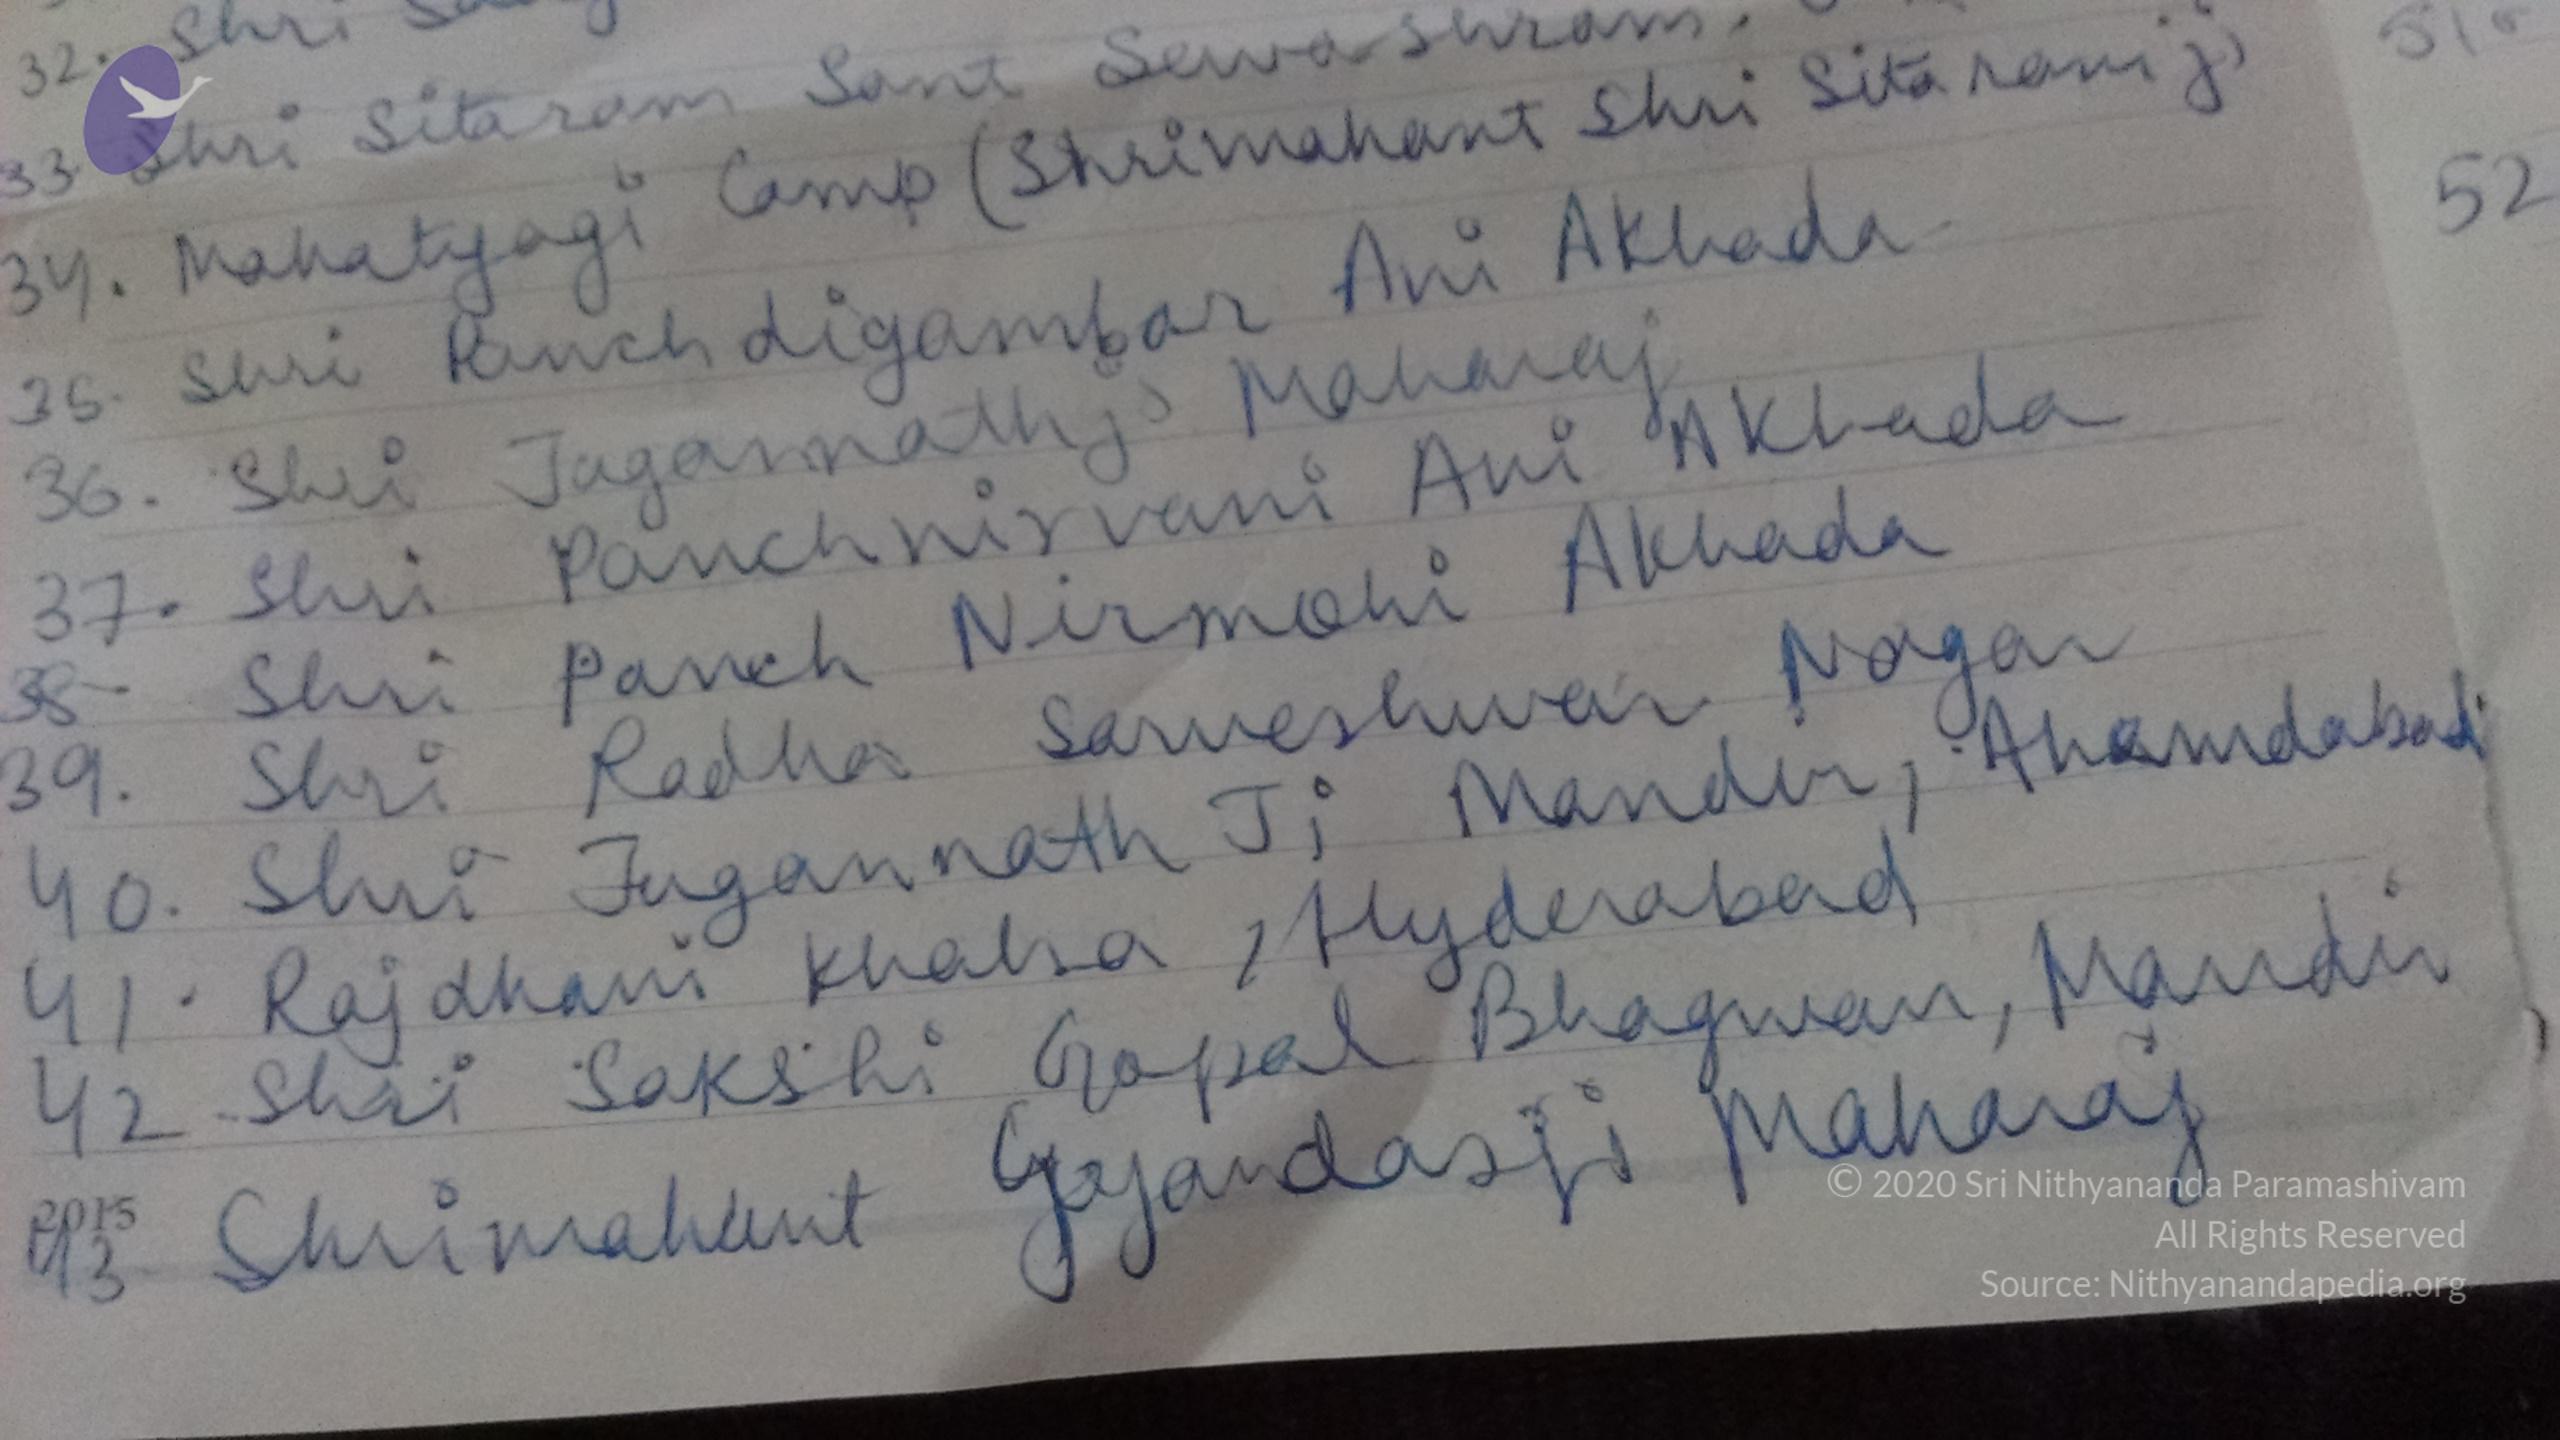 32. Shri
33 Shri Sitaram Sant Sewashram.
34. Mahatyagi Camp (Shrimahant Shri Sitaramji)
35. Shri Panchdigambar Ani Akhada
36. Shri Jagannathji Maharaj
37. Shri Panchnirvani Ani Akhada
38- Shri Panch Nirmohi Akhada
39. Shri Radha Sarveshwar Nagar
40. Shri Jugannath Ji Mandir, Ahamdabad
41. Rajdhani Khalsa, Hyderabad
42 Shri Sakshi Gopal Bhagwan, Mandir
43 Shrimahant Gyandasji Maharaj
52
2015
© 2020 Sri Nithyananda Paramashivam
All Rights Reserved
Source: Nithyanandapedia.org